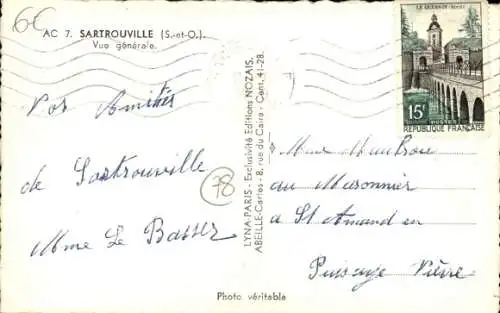 6€
AC 7. SARTROUVILLE (S.-et-O.).
Vue générale.
Amitiés
de Sartrouville
Mme Le
78
LYNA-PARIS - Exclusivité Editions NOZAIS.
ABEILLE-Cartes - 8, rue du Caire - Cent. 41-28.
LE QUESNOY (Nord)
15F
POSTES
REPUBLIQUE FRANÇAISE
Mme
au Maronnier
a St Amand en
Puisaye Nièvre
Photo véritable